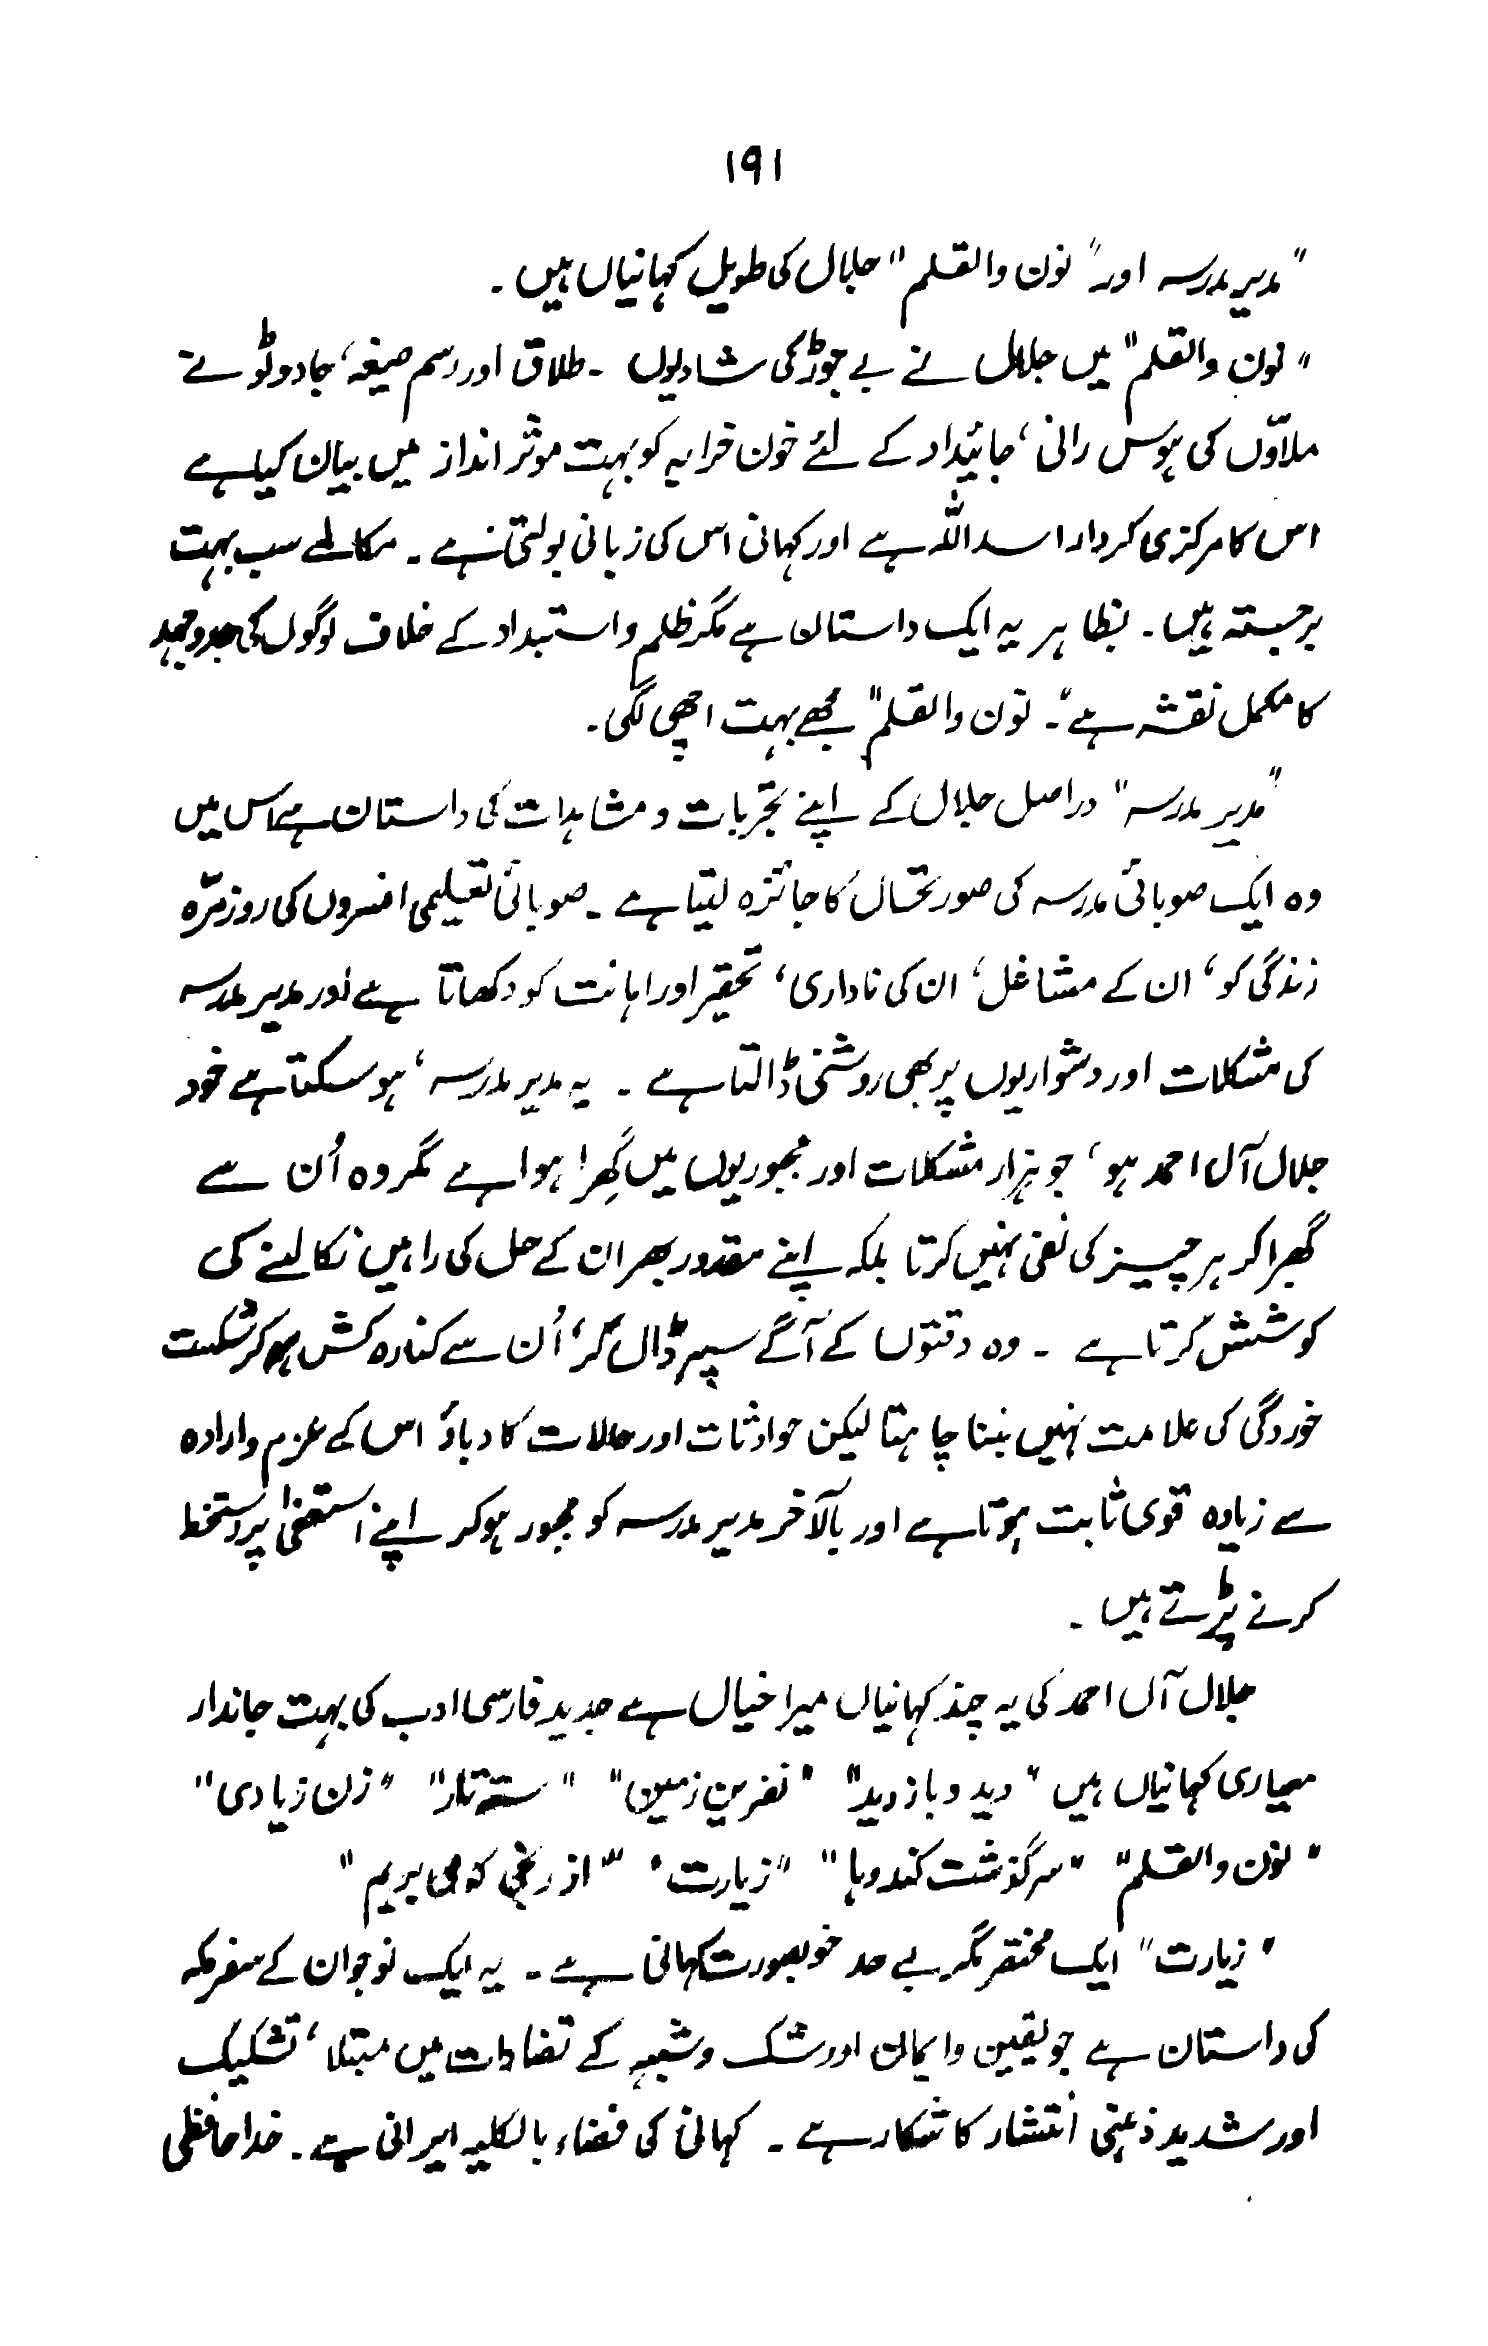 ۱۹۱
"مدیر مدرسہ اور" نون والقلم" جلال کی طویل کہانیاں ہیں۔
"نون والقلم" میں جلال نے بے جوڑ کی شادیوں ۔ طلاق اور رسم صیغہ، جادو ٹونے
ملاؤں کی ہوس رانی، جائیداد کے لئے خون خرابہ کو بہت موثر انداز میں بیان کیا ہے
اس کا مرکزی کردار اسد اللہ ہے اور کہانی اس کی زبانی بولتی ہے۔ مکالمے سب بہت
برجستہ ہیں۔ بظاہر یہ ایک داستان ہے مگر ظلم و استبداد کے خلاف لوگوں کی جدوجہد
کا مکمل نقشہ ہے"۔ نون والقلم" مجھے بہت اچھی لگی۔
"مدیر مدرسہ" دراصل جلال کے اپنے تجربات و مشاہدات کی داستان ہے اس میں
وہ ایک صوبائی مدرسہ کی صورتحال کا جائزہ لیتا ہے۔ صوبائی تعلیمی افسروں کی روزمرّہ
زندگی کو، ان کے مشاغل، ان کی ناداری، تحقیر اور اہانت کو دکھاتا ہے اور مدیر مدرسہ
کی مشکلات اور دشواریوں پر بھی روشنی ڈالتا ہے۔ یہ مدیر مدرسہ، ہو سکتا ہے خود
جلال آل احمد ہو، جو ہزار مشکلات اور مجبوریوں میں گِھرا ہوا ہے مگر وہ اُن سے
گھبرا کر ہر چیز کی نفی نہیں کرتا بلکہ اپنے مقدور بھر ان کے حل کی راہیں نکالنے کی
کوشش کرتا ہے ۔ وہ دقتوں کے آگے سپر ڈال کر، اُن سے کنارہ کش ہو کر شکست
خوردگی کی علامت نہیں بننا چاہتا لیکن حوادثات اور حالات کا دباؤ اس کے عزم و ارادہ
سے زیادہ قوی ثابت ہوتا ہے اور بالآخر مدیر مدرسہ کو مجبور ہو کر اپنے استعفیٰ پر دستخط
کرنے پڑتے ہیں ۔
جلال آل احمد کی یہ چند کہانیاں میرا خیال ہے جدید فارسی ادب کی بہت جاندار
معیاری کہانیاں ہیں "دید و بازدید" "نفرین زمین" "سہ تار" "زن زیادی"
"نون والقلم" "سرگذشت کندوہا" "زیارت" "از رنجی کہ می بریم"
"زیارت" ایک مختصر مگر بے حد خوبصورت کہانی ہے۔ یہ ایک نوجوان کے سفر مکہ
کی داستان ہے جو یقین و ایمان اور شک و شبہہ کے تضادات میں مبتلا، تشکیک
اور شدید ذہنی انتشار کا شکار ہے ۔ کہانی کی فضاء بالکلیہ ایرانی ہے۔ خدا حافظی